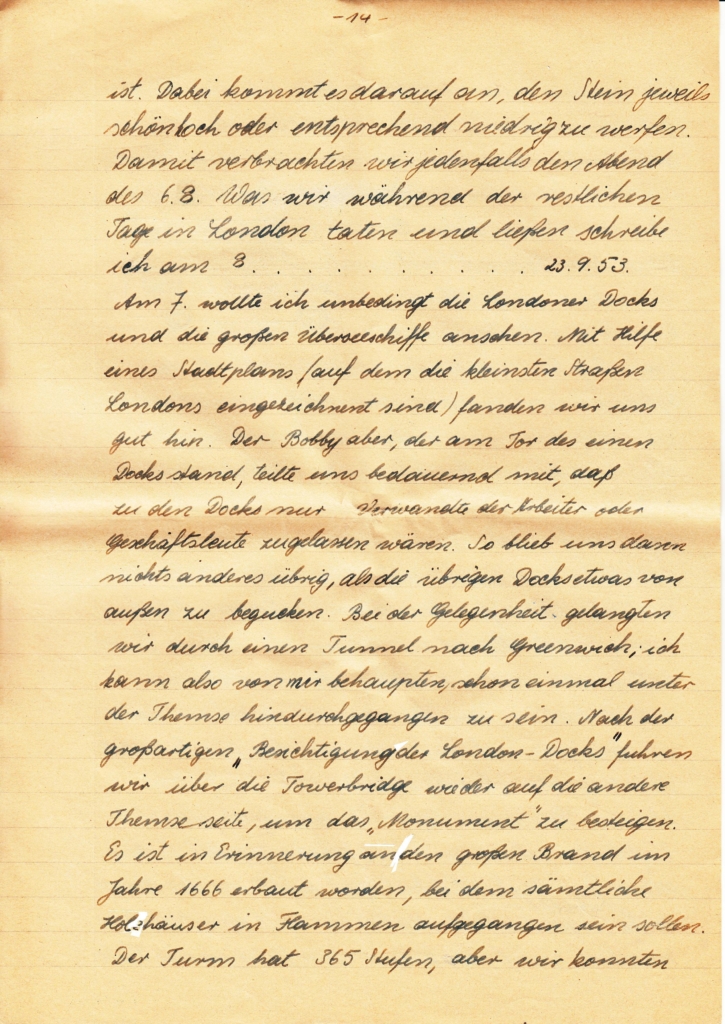 -14-
ist. Dabei kommt es darauf an, den Stein jeweils
schön hoch oder entsprechend niedrig zu werfen.
Damit verbrachten wir jedenfalls den Abend
des 6.8. Was wir während der restlichen
Tage in London taten und ließen schreibe
ich am 8. . . . . . . . . . . . . 23.9.53.
Am 7. wollte ich unbedingt die Londoner Docks
und die großen Überseeschiffe ansehen. Mit Hilfe
eines Stadtplans (auf dem die kleinsten Straßen
Londons eingezeichnent sind) fanden wir uns
gut hin. Der Bobby aber, der am Tor des einen
Docks stand, teilte uns bedauernd mit, daß
zu den Docks nur Verwandte der Arbeiter oder
Geschäftsleute zugelassen wären. So blieb uns dann
nichts anderes übrig, als die übrigen Docks etwas von
außen zu begucken. Bei der Gelegenheit gelangten
wir durch einen Tunnel nach Greenwich; ich
kann also von mir behaupten, schon einmal unter
der Themse hindurchgegangen zu sein. Nach der
großartigen „Besichtigung der London-Docks" fuhren
wir über die Towerbridge wieder auf die andere
Themseseite, um das „Monument" zu besteigen.
Es ist in Erinnerung an den großen Brand im
Jahre 1666 erbaut worden, bei dem sämtliche
Holzhäuser in Flammen aufgegangen sein sollen.
Der Turm hat 365 Stufen, aber wir konnten